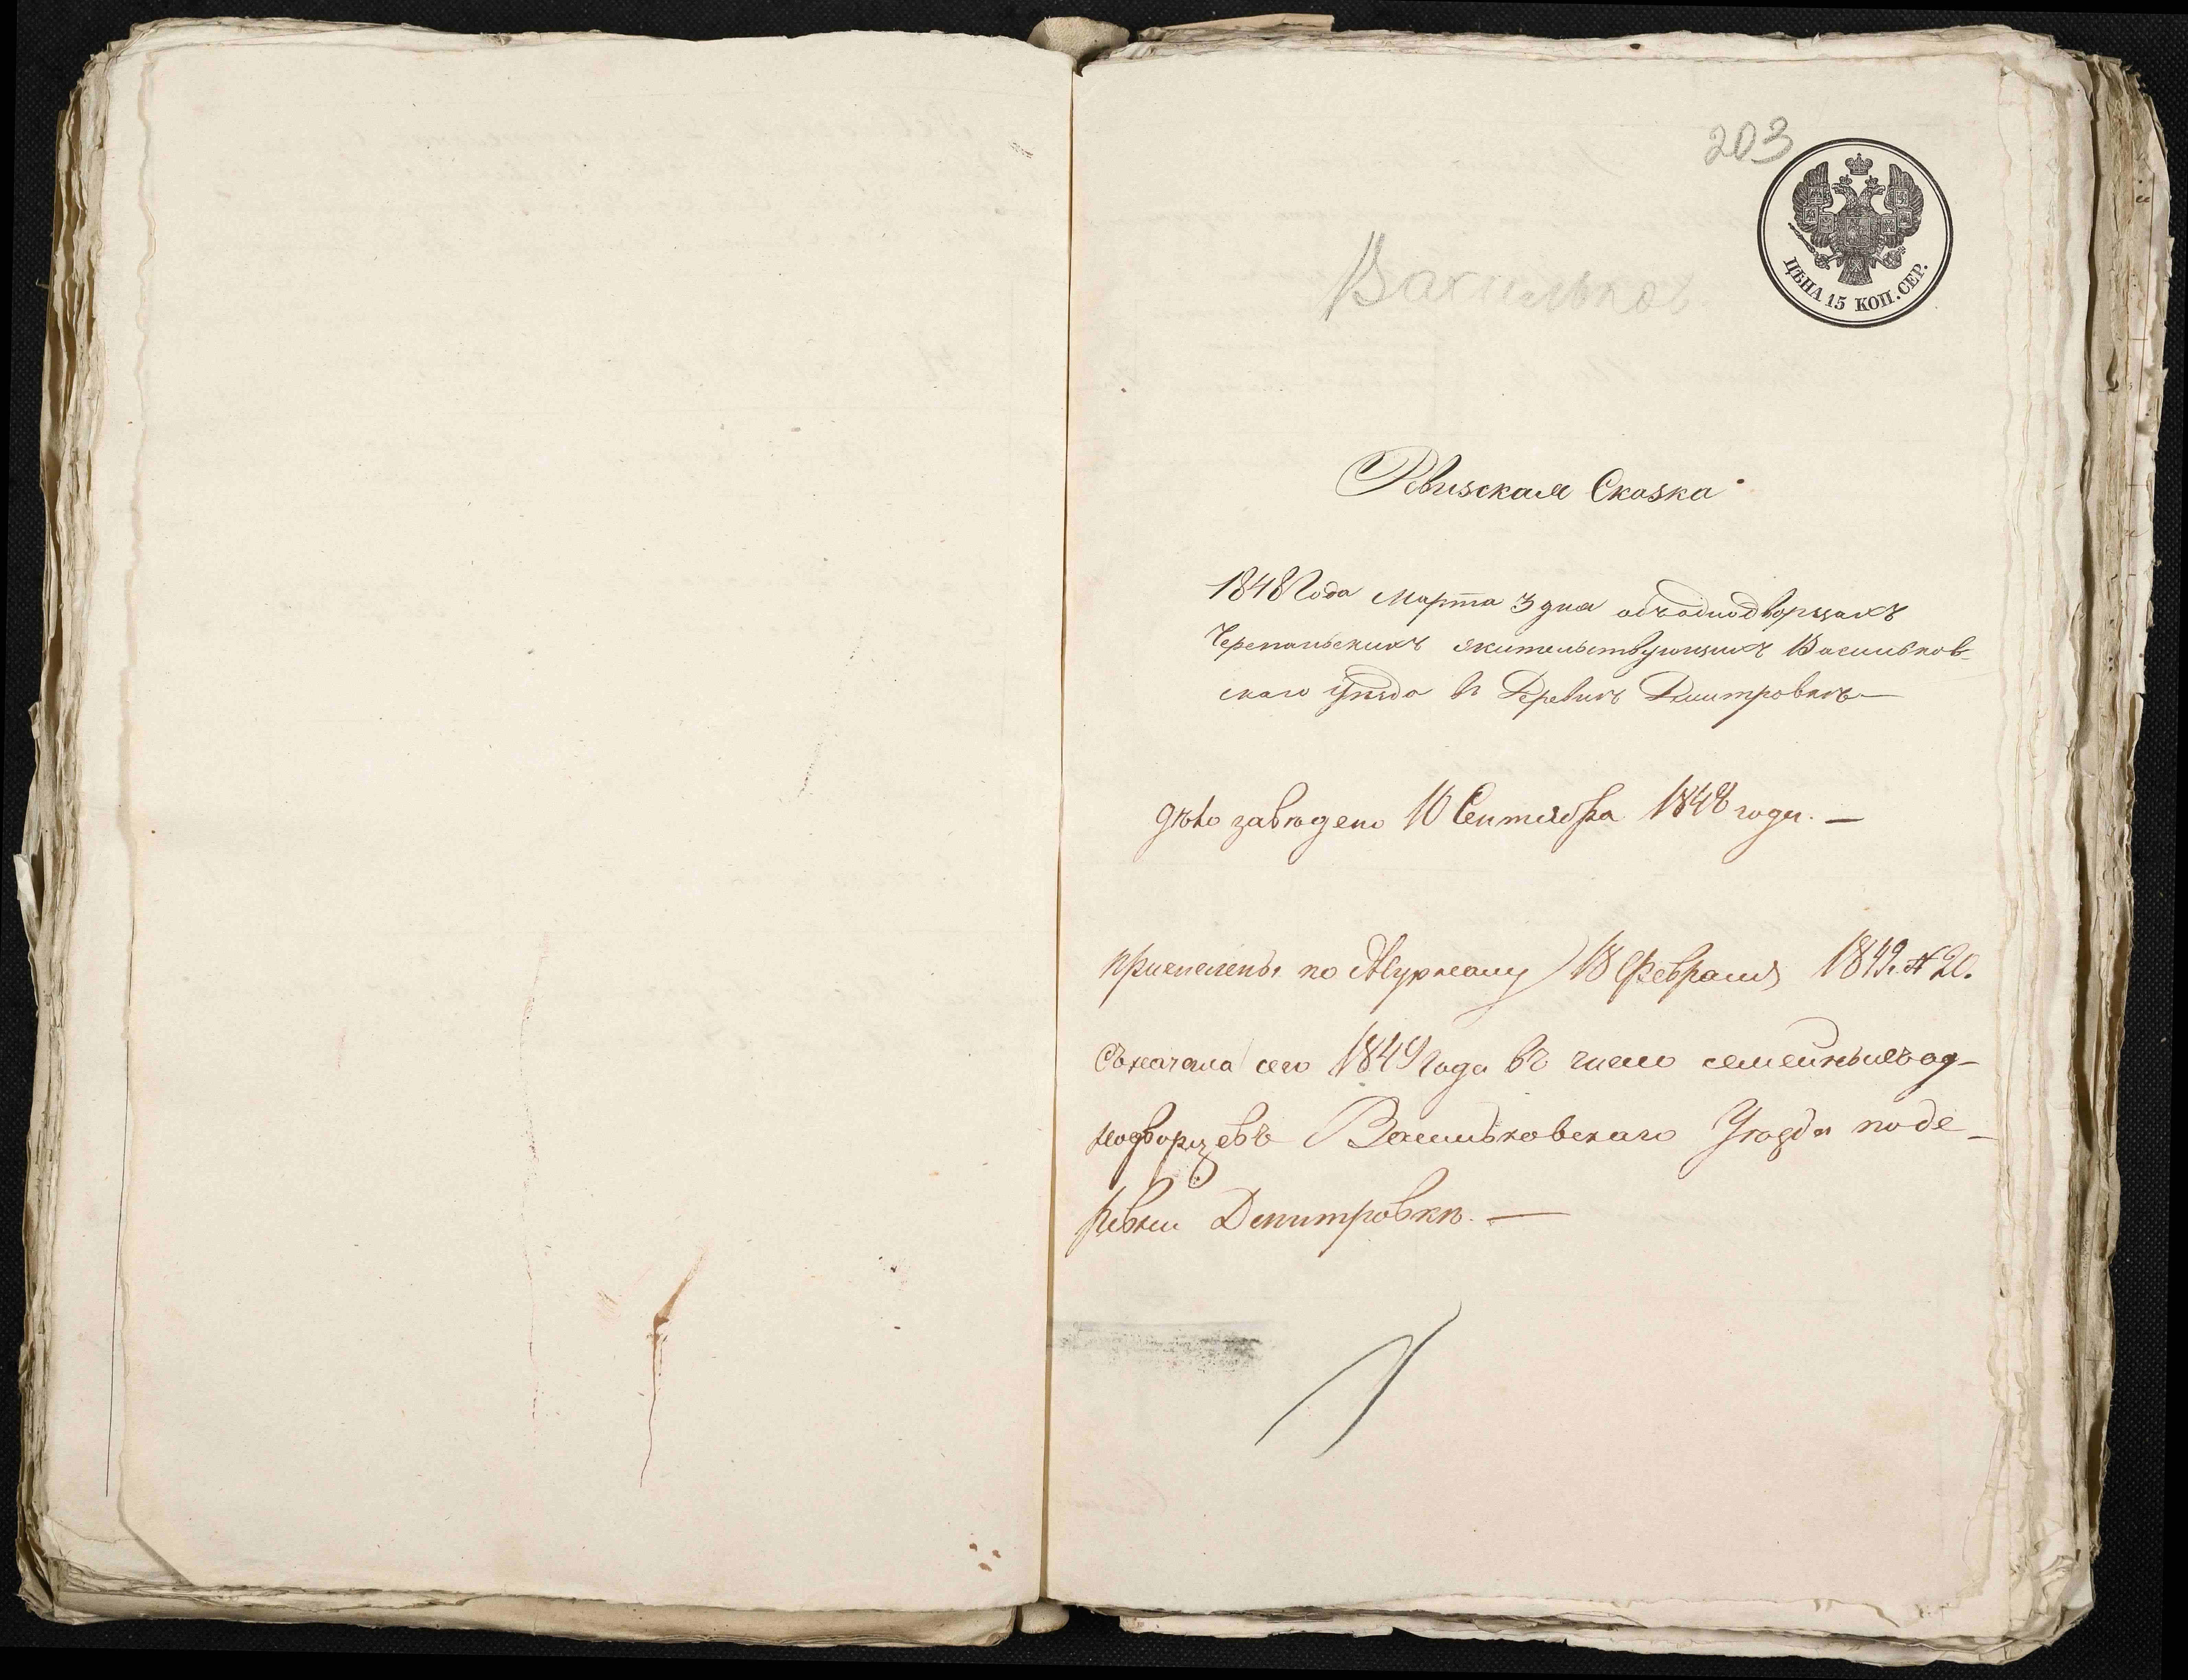 203
ЦѢНА 15 КОП. СЕР.
Васильков
Ревизская Сказка
1848 Года Марта 3 дня объ однодворцахъ
Черепаньскихъ жительствующихъ Васильков-
скаго уѣзда въ Деревнѣ Дмитровкѣ —
дѣло заведено 10 Сентября 1848 года. —
причислены по Журналу 18 Февраля 1849 г. № 20.
съ начала сего 1849 года въ число семейныхъ од-
нодворцевъ Васильковскаго Уѣзда по де-
ревни Дмитровкѣ. —